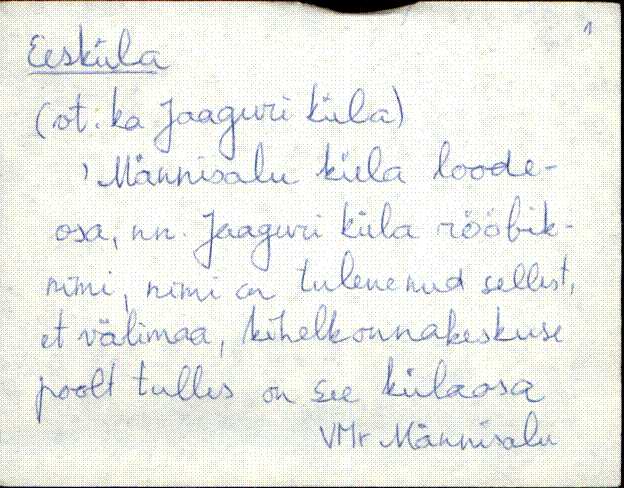 1
Eesküla
(vt. ka Jaaguri küla)
) Männisalu küla loode-
osa, nn. Jaaguri küla rööbik-
nimi, nimi on tulenenud sellest,
et välimaa, kihelkonnakeskuse
poolt tulles on see külaosa
VMr Männisalu